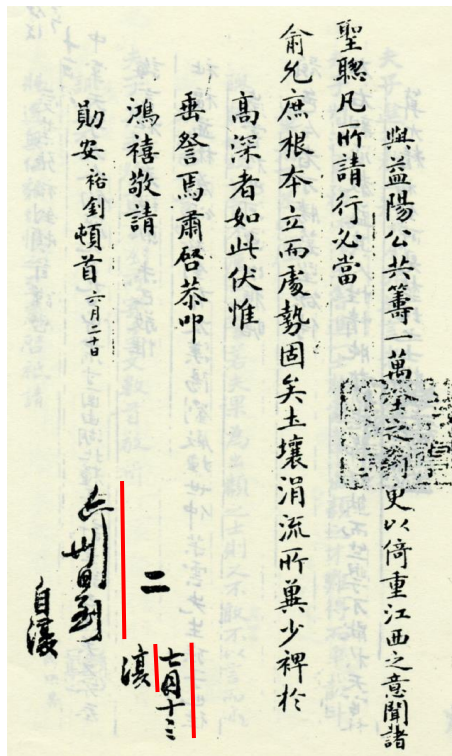 與益陽公共籌一萬全之策更以倚重江西之意聞諸
聖聰凡所請行必當
俞允庶根本立而處勢固矣土壤涓流所冀少裨於
高深者如此伏惟
垂詧焉肅啓恭叩
鴻禧敬請
勛安 裕釗頓首 六月二十日
二
七月十三
覆
自覆